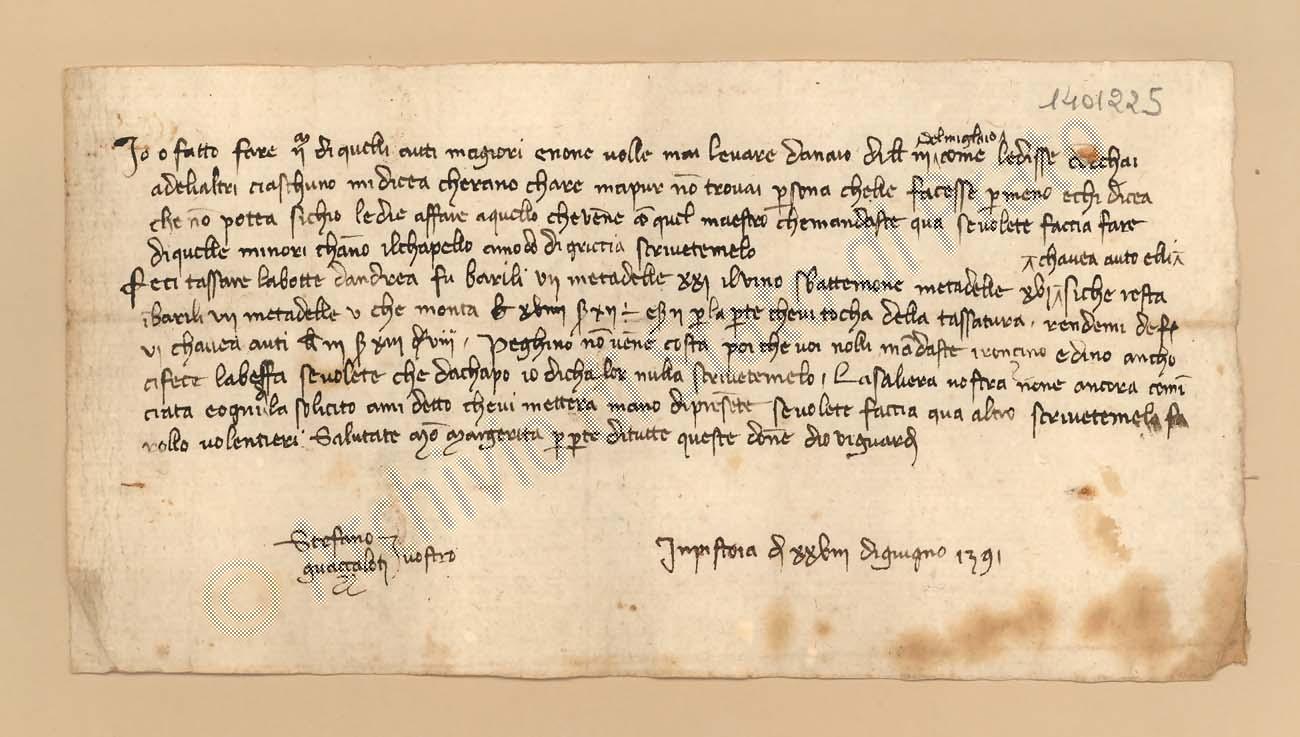 1401225
Io o fatto fare di quelli auti magiori e none volle mai levare danaio di ll. iii del miglaio come le disse
a deli altri ciaschuno mi dicea cherano chare ma pur nō trovai psona chelle facesse p meno e chi dicea
che nō potea sichio le die affare a quello che vēne cō quel maestro chemandaste qua se volete faccia fare
di quelle minori chāno il chapello a modo di griccia scrivetemelo
Feci tassare la botte dandrea fu barili vii metadelle xxi il vino sbattemone metadelle xvi chavea auto elli siche resta
ī barili vii metadelle v che monta e p la pte chevi tocha della tassatura, rendemi de
vi chavea auti Peghino nō vēne costa poi che voi nolli mādaste i roncino e dino ancho
ci fece la beffa se volete che dachapo io dicha lor nulla scrivetemelo, La saliera vostra none ancora comī
ciata e ogni dì la solicito ami detto chevi mettera mano di presēte se volete faccia qua altro scrivetemelo fa
rollo volentieri. Salutate Mōa Margerita p pte di tutte queste dōne dio vi guardi
Stefano
guazzaloti vostro
In pistoia dì xxviii di giugno 1391
© Archivio di Stato di Prato